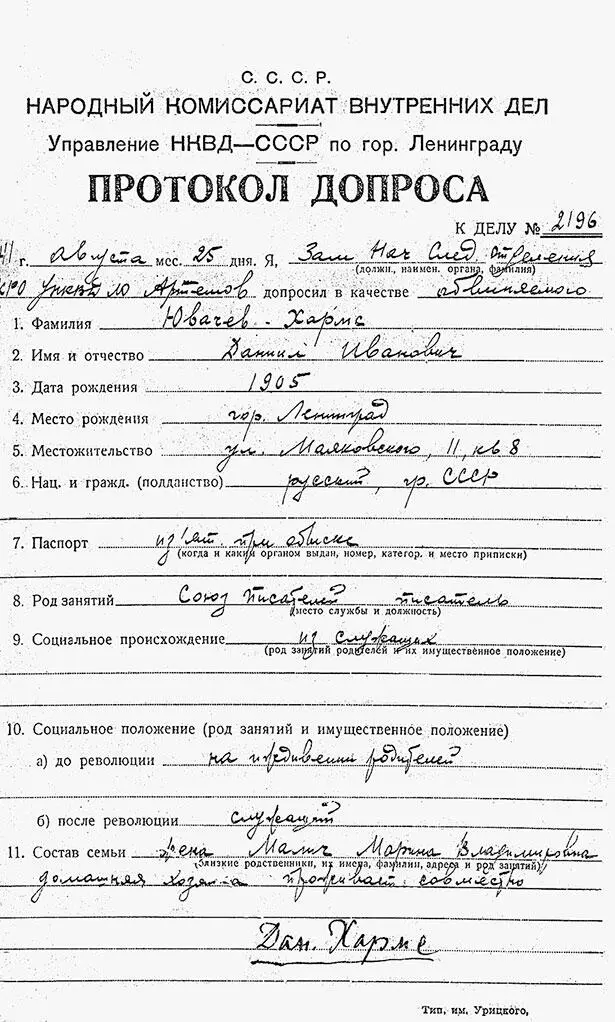 С. С. С. Р.
НАРОДНЫЙ КОМИССАРИАТ ВНУТРЕННИХ ДЕЛ
Управление НКВД—СССР по гор. Ленинграду
ПРОТОКОЛ ДОПРОСА
К ДЕЛУ № 2196
41 г. августа мес. 25 дня. Я, Зам Нач След Отделения
(должн., наимен. органа, фамилия)
КРО УНКВД ЛО Артемов допросил в качестве обвиняемого
1. Фамилия Ювачев-Хармс
2. Имя и отчество Даниил Иванович
3. Дата рождения 1905
4. Место рождения гор. Ленинград
5. Местожительство ул. Маяковского, 11, кв 8
6. Нац. и гражд. (подданство) русский, гр. СССР
7. Паспорт из'ят при обыске
(когда и каким органом выдан, номер, категор. и место приписки)
8. Род занятий Союз Писателей писатель
(место службы и должность)
9. Социальное происхождение из служащих
(род занятий родителей и их имущественное положение)
10. Социальное положение (род занятий и имущественное положение)
а) до революции на иждивении родителей
б) после революции служащий
11. Состав семьи жена Малич Марина Владимировна
(близкие родственники, их имена, фамилии, адреса и род занятий)
домашняя хозяйка проживает совместно
Дан. Хармс
Тип. им. Урицкого,